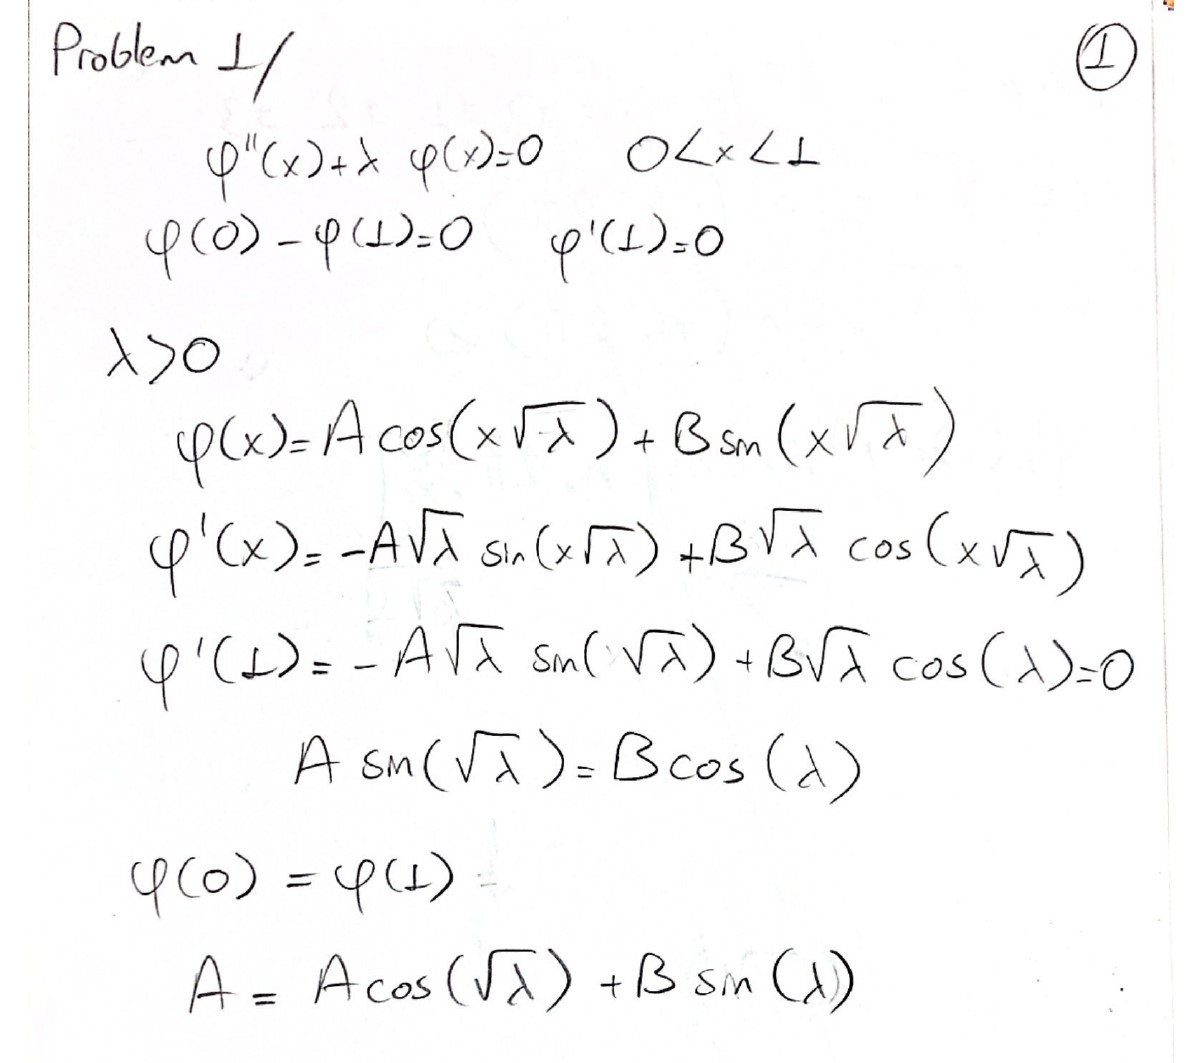 Problem 1/
①
φ''(x)+λ φ(x)=0 0<x<1
φ(0)-φ(1)=0 φ'(1)=0
λ>0
φ(x)=A cos(x√λ)+B sin(x√λ)
φ'(x)=-A√λ sin(x√λ)+B√λ cos(x√λ)
φ'(1)=-A√λ sin(√λ)+B√λ cos(λ)=0
A sin(√λ)=B cos(λ)
φ(0)=φ(1)
A=A cos(√λ)+B sin(λ)